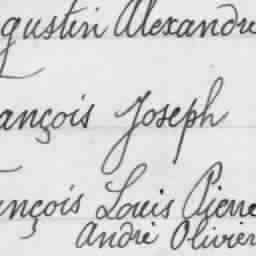 gustin Alexandre
ançois Joseph
ançois Louis Pierre
André Olivier